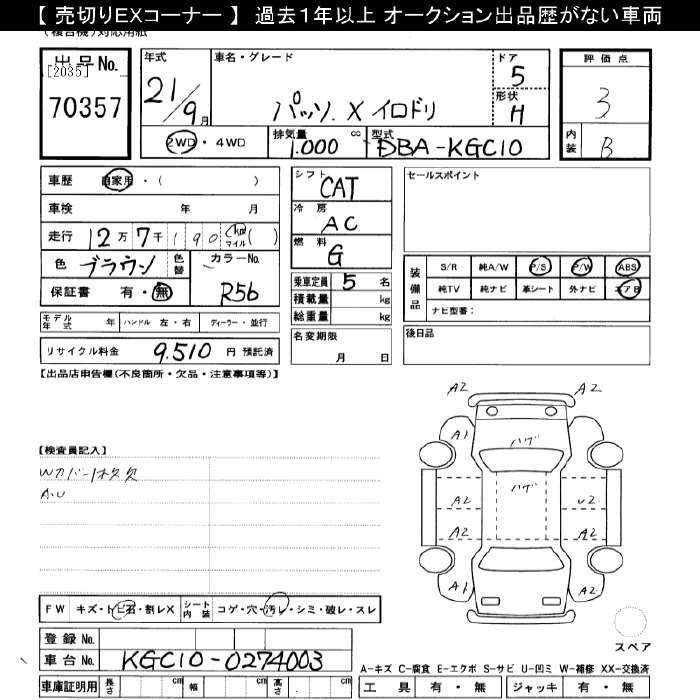 【 売切りEXコーナー 】 過去１年以上 オークション出品歴がない車両
(複合機)対応用紙
出品No.
[2035]
70357
年式
21/9月
車名・グレード
パッソ X イロドリ
ドア
5
形状
H
評価点
3
内装
B
2WD・4WD
排気量
1.000 cc
型式
DBA-KGC10
車歴 自家用・( )
車検 年 月
走行 12万7千190 km マイル( )
色 ブラウン 色替 カラーNo. R56
保証書 有・無
シフト
CAT
冷房
AC
燃料
G
乗車定員 5 名
積載量 kg
総重量 kg
セールスポイント
装備品
S/R 純A/W P/S P/W ABS
純TV 純ナビ 革シート 外ナビ エアB
ナビ型番:
モデル年式 年 ハンドル 左・右 ディーラー・並行
リサイクル料金 9.510 円 預託済
名変期限
月 日
後日品
【出品店申告欄(不良箇所・欠品・注意事項等)】
【検査員記入】
Wカバー1枚欠
A.U
A2 A2
A1
ハゲ
ハゲ
A2 U2
A2 A2
A1 A2
FW キズ・トビ石・割レX シート内装 コゲ・穴・汚レ・シミ・破レ・スレ
スペア
登録No.
車台No. KGC10-0274003
車庫証明用 長さ cm 幅 cm 高さ cm
A-キズ C-腐食 E-エクボ S-サビ U-凹ミ W-補修 XX-交換済
工具 有・無 ジャッキ 有・無